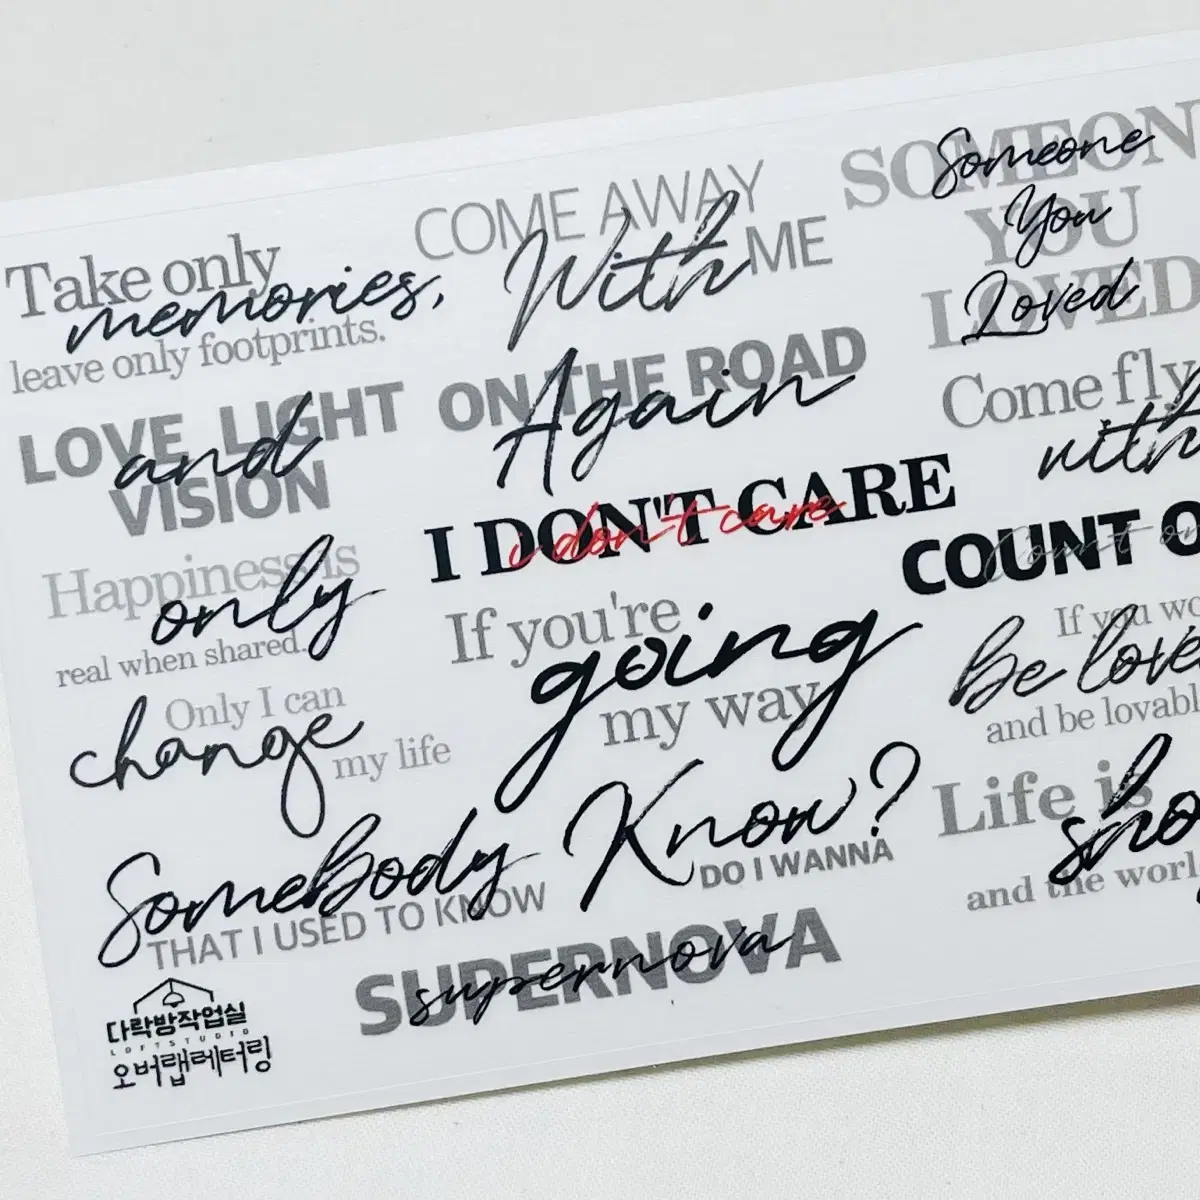 Take only
memories,
leave only footprints.
COME AWAY
With
ME
SOMEON
Someone
YOU
You
LOVED
Loved
LOVE LIGHT
and
VISION
ON THE ROAD
Again
Come fly
with
I DON'T CARE
i don't care
COUNT O
Count on
Happiness is
only
real when shared.
If you're
going
my way
If you wo
Be love
and be lovabl
Only I can
change
my life
SomeBody
THAT I USED TO KNOW
Know?
DO I WANNA
Life is
sho
and the worl
SUPERNOVA
supernova
다락방작업실
LOFTSTUDIO
오버랩레터링